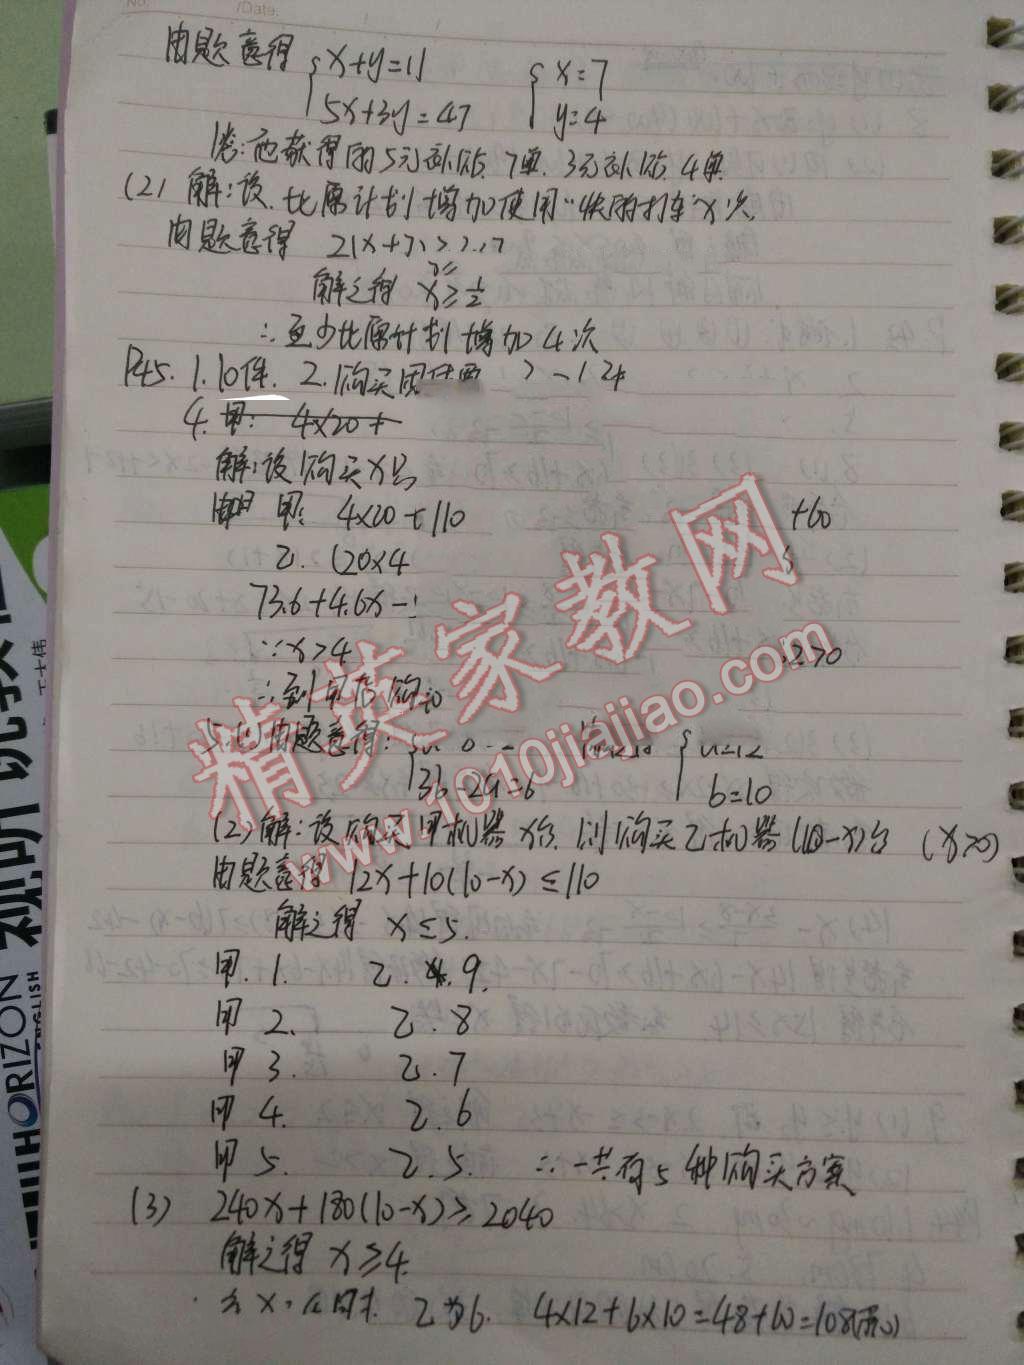 No.
/Date:
由题意得 { x+y=11 { x=7
5x+3y=47 y=4
答:他获得的5元补贴7单,3元补贴4单
(2) 解:设,比原计划增加使用"快的打车"x次,
由题意得
解之得 x≥½
∴至少比原计划增加4次
P45. 1. 10件. 2. 购买
4. 甲: 4×20+
解:设购买x只
甲: 4×20+110 +60
乙. (20×4
73.6+4.6x-
∵x>4 >0
∴到
5.(1)由题意得: { {
3b-2a=6 b=10
(2)解:设购买甲机器x台,则购买乙机器(10-x)台 (x≥0)
由题意得 12x+10(10-x)≤110
解之得 x≤5.
甲.1. 乙.9.
甲2. 乙.8
甲3. 乙.7
甲4. 乙.6
甲5. 乙.5. ∴一共有5种购买方案
(3) 240x+180(10-x)≥2040
解之得 x≥4.
乙为6. 4×12+6×10=48+60=108(万元)
精英家教网
www.1010jiajiao.com
HORIZON
ENGLISH